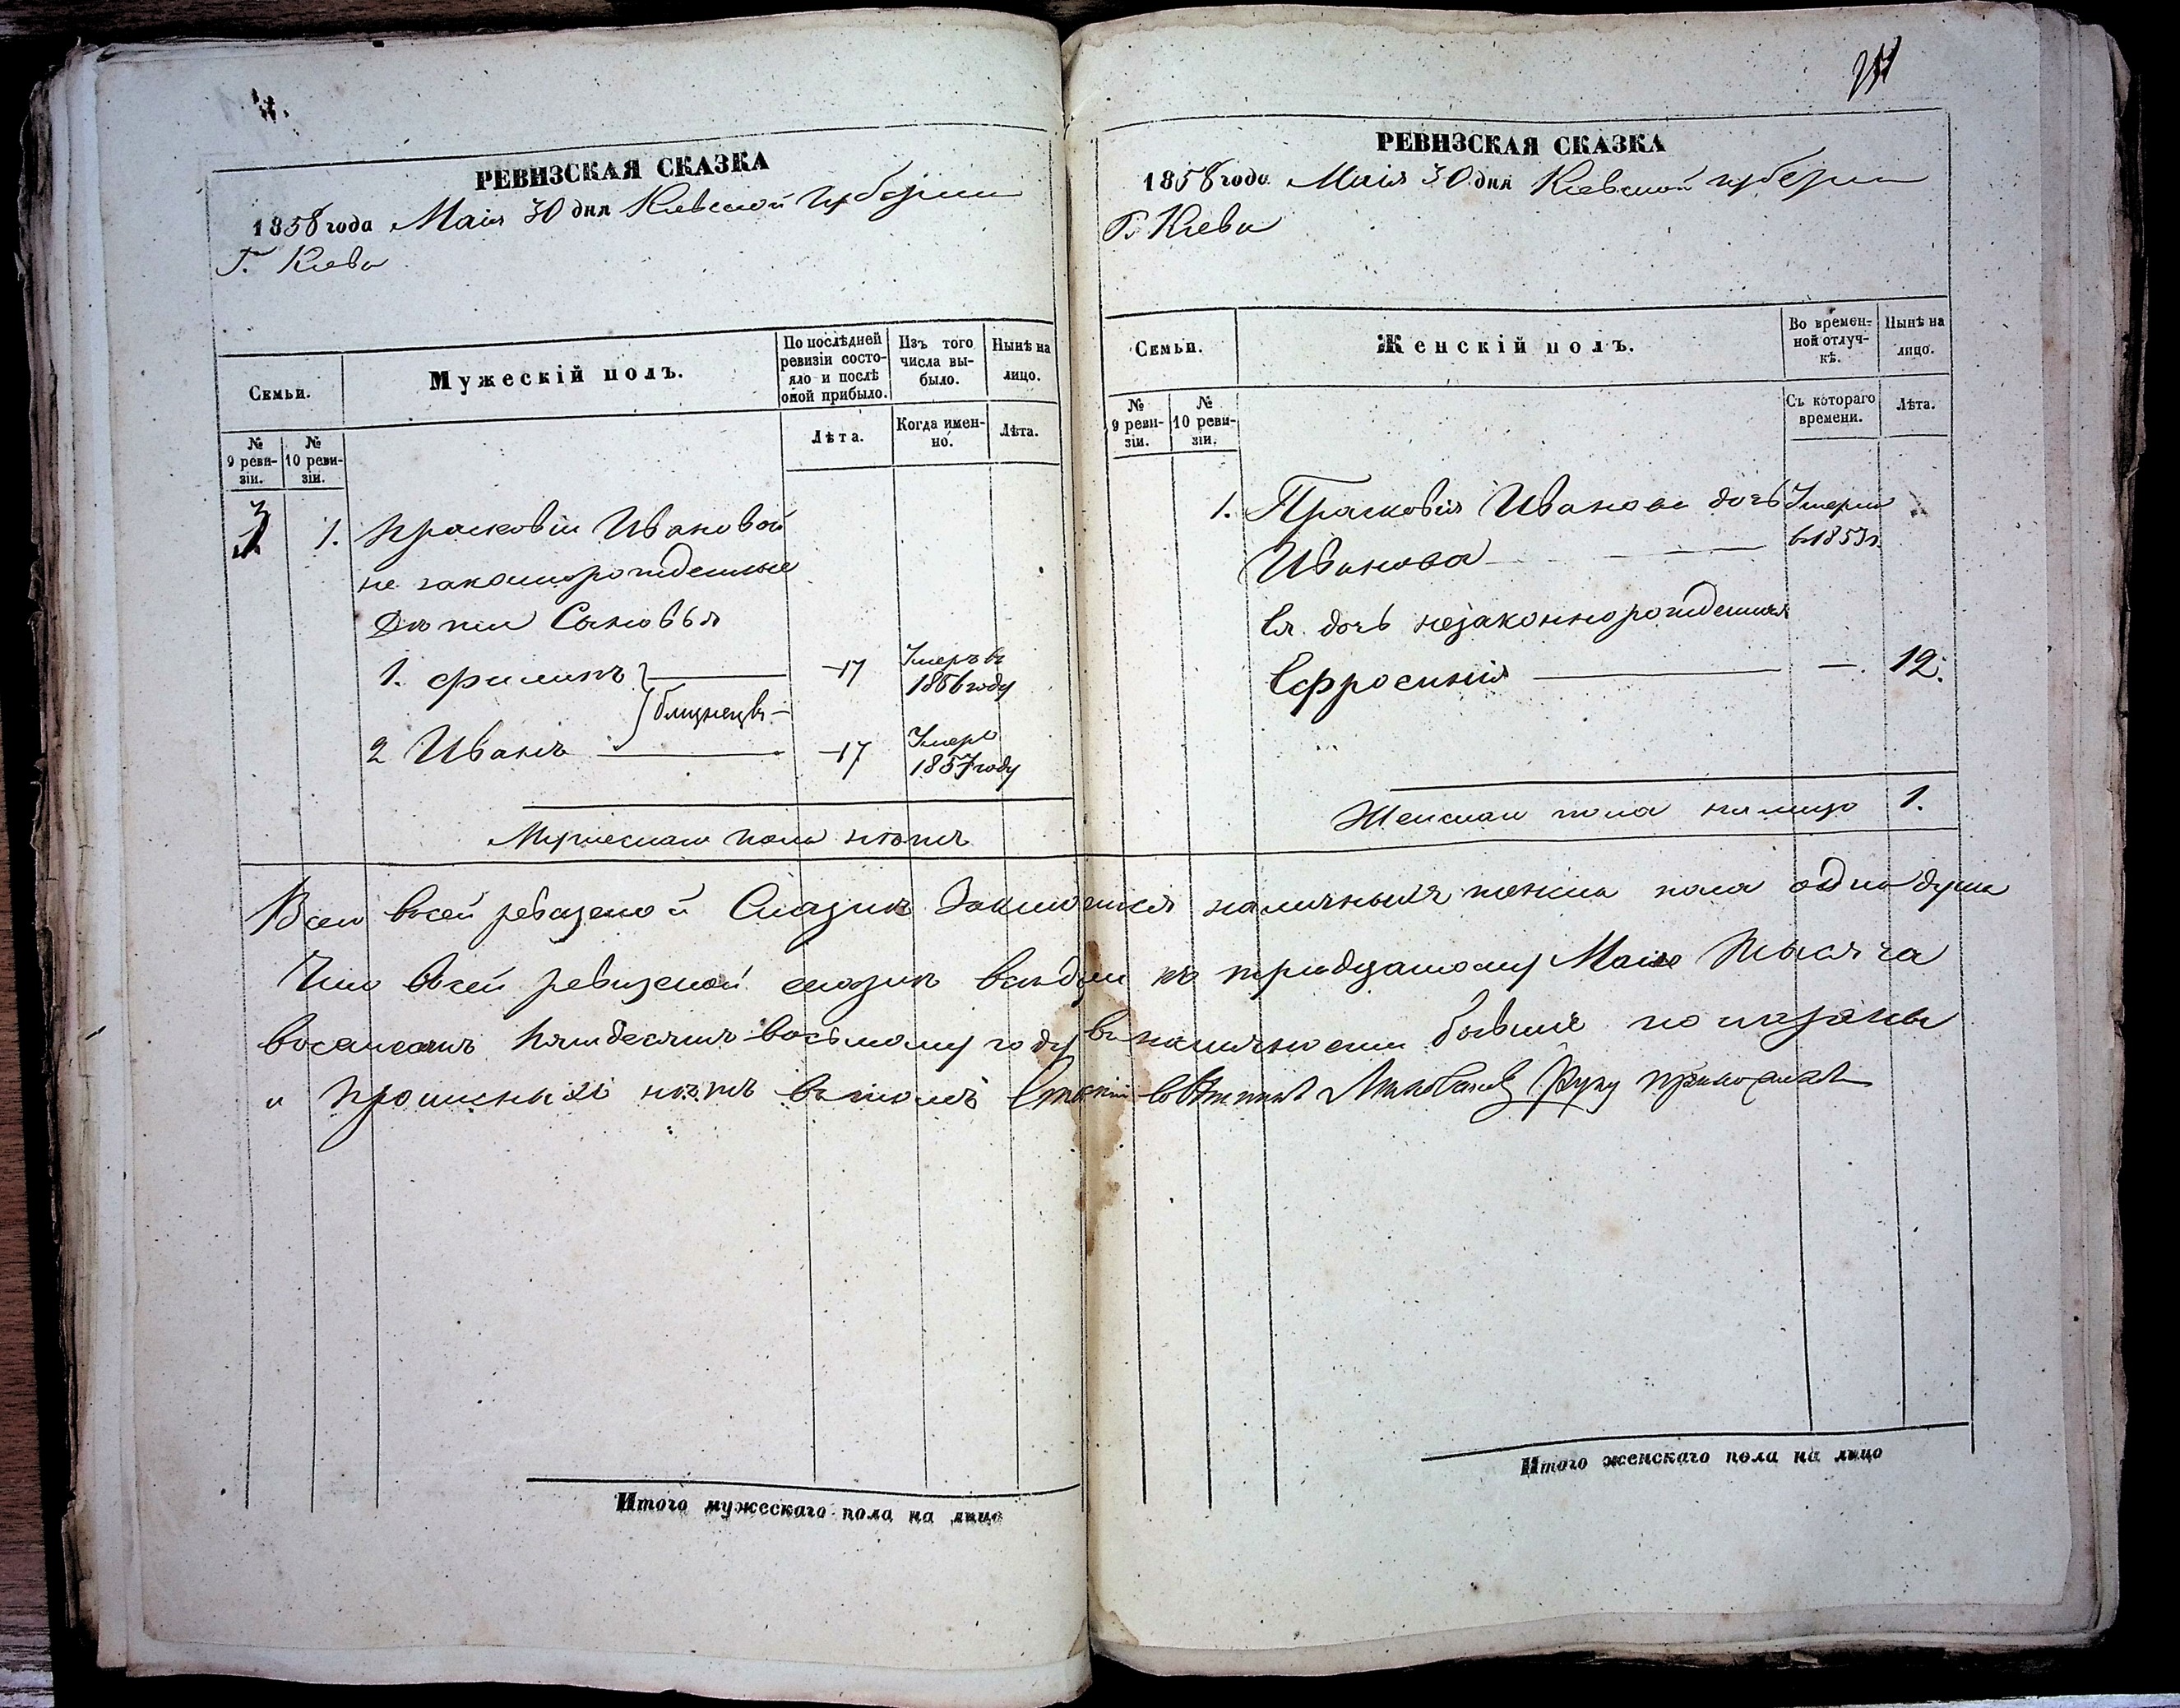 РЕВИЗСКАЯ СКАЗКА
1858 года Маія 30 дня Кіевской губерніи
Г. Кіева
Семьи.
Мужескій полъ.
По послѣдней ревизіи состояло и послѣ оной прибыло.
Изъ того числа выбыло.
Нынѣ на лицо.
№ 9 ревизіи.
№ 10 ревизіи.
Лѣта.
Когда именно.
Лѣта.
3 1. Прасковіи Ивановой
не законнорожденные
дѣти Сыновья
1. Филипъ 17 Умеръ въ 1856 году
близнецы
2 Иванъ 17 Умеръ 1857 году
Мужескаго пола нѣтъ
РЕВИЗСКАЯ СКАЗКА
1858 года Маія 30 дня Кіевской губерніи
Г. Кіева
Семьи.
Женскій полъ.
Во временной отлучкѣ.
Нынѣ на лицо.
№ 9 ревизіи.
№ 10 ревизіи.
Съ котораго времени.
Лѣта.
1. Прасковія Иванова дочь Умерла
Иванова в 1853 г.
Ея дочь незаконнорожденная
Ефросинія — 12.
Женскаго пола на лицо 1.
Всего в сей ревизской Сказкѣ наличныхъ женска пола одна душа
Что в сей ревизской сказкѣ всѣ души къ тридцатому Маія тысяча
восемсотъ пятдесятъ восьмому году въ наличности бывшіе показаны
и прописныхъ нѣтъ въ томъ Статскій совѣтникъ руку приложилъ
Итого мужескаго пола на лицо
Итого женскаго пола на лицо